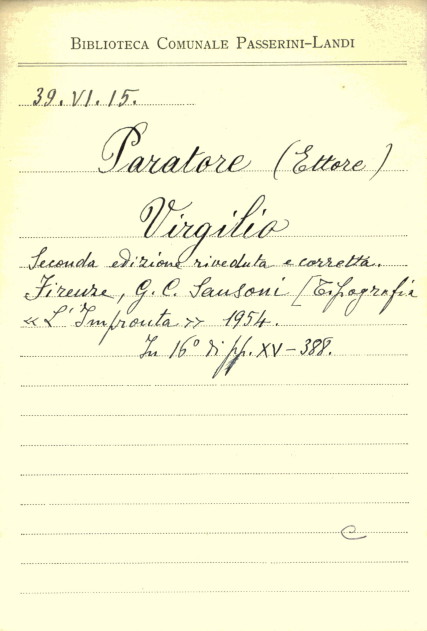 BIBLIOTECA COMUNALE PASSERINI-LANDI
39. VI. 15.
Paratore (Ettore)
Virgilio
Seconda edizione riveduta e corretta.
Firenze, G. C. Sansoni [Tipografia
« L'Impronta » 1954.
In 16° di pp. XV-388.
C